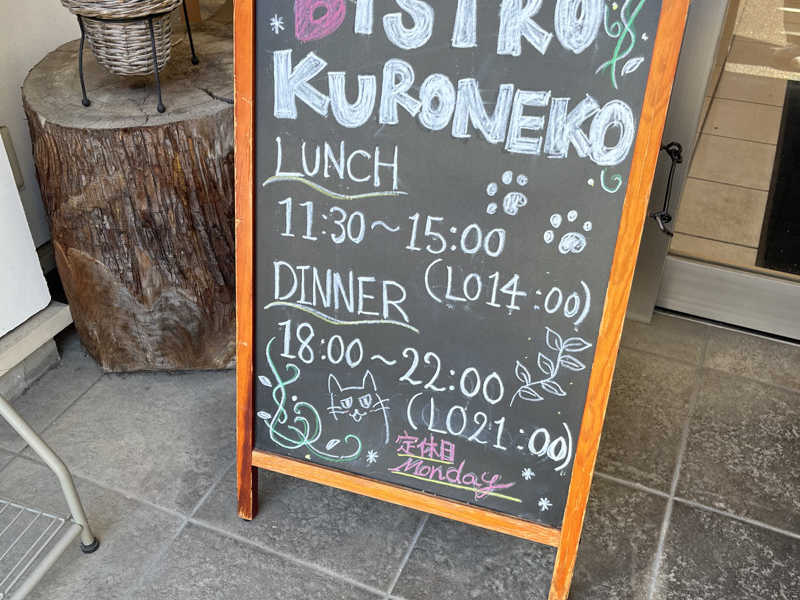 BISTRO
KURONEKO
LUNCH
11:30～15:00
(LO14:00)
DINNER
18:00～22:00
(LO21:00)
定休日
Monday